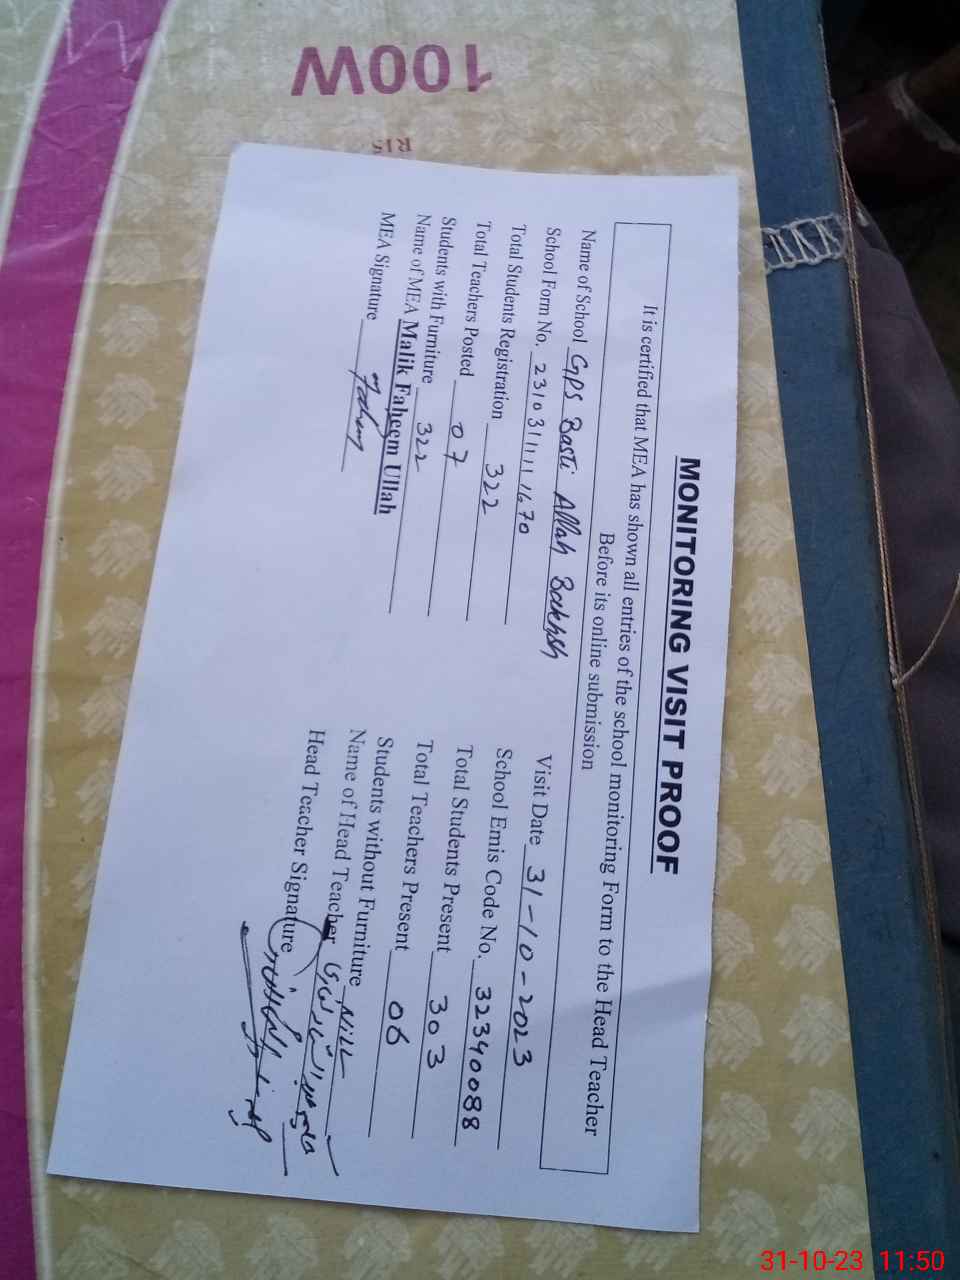 100W
R15
MONITORING VISIT PROOF
It is certified that MEA has shown all entries of the school monitoring Form to the Head Teacher
Before its online submission
Name of School GPS Basti Allah Bakhsh
Visit Date 31-10-2023
School Form No. 2310311111670
School Emis Code No. 32340088
Total Students Registration 322
Total Students Present 303
Total Teachers Posted 07
Total Teachers Present 06
Students with Furniture 322
Students without Furniture Nill
Name of MEA Malik Faheem Ullah
Name of Head Teacher
MEA Signature Faheem
Head Teacher Signature
31-10-23 11:50